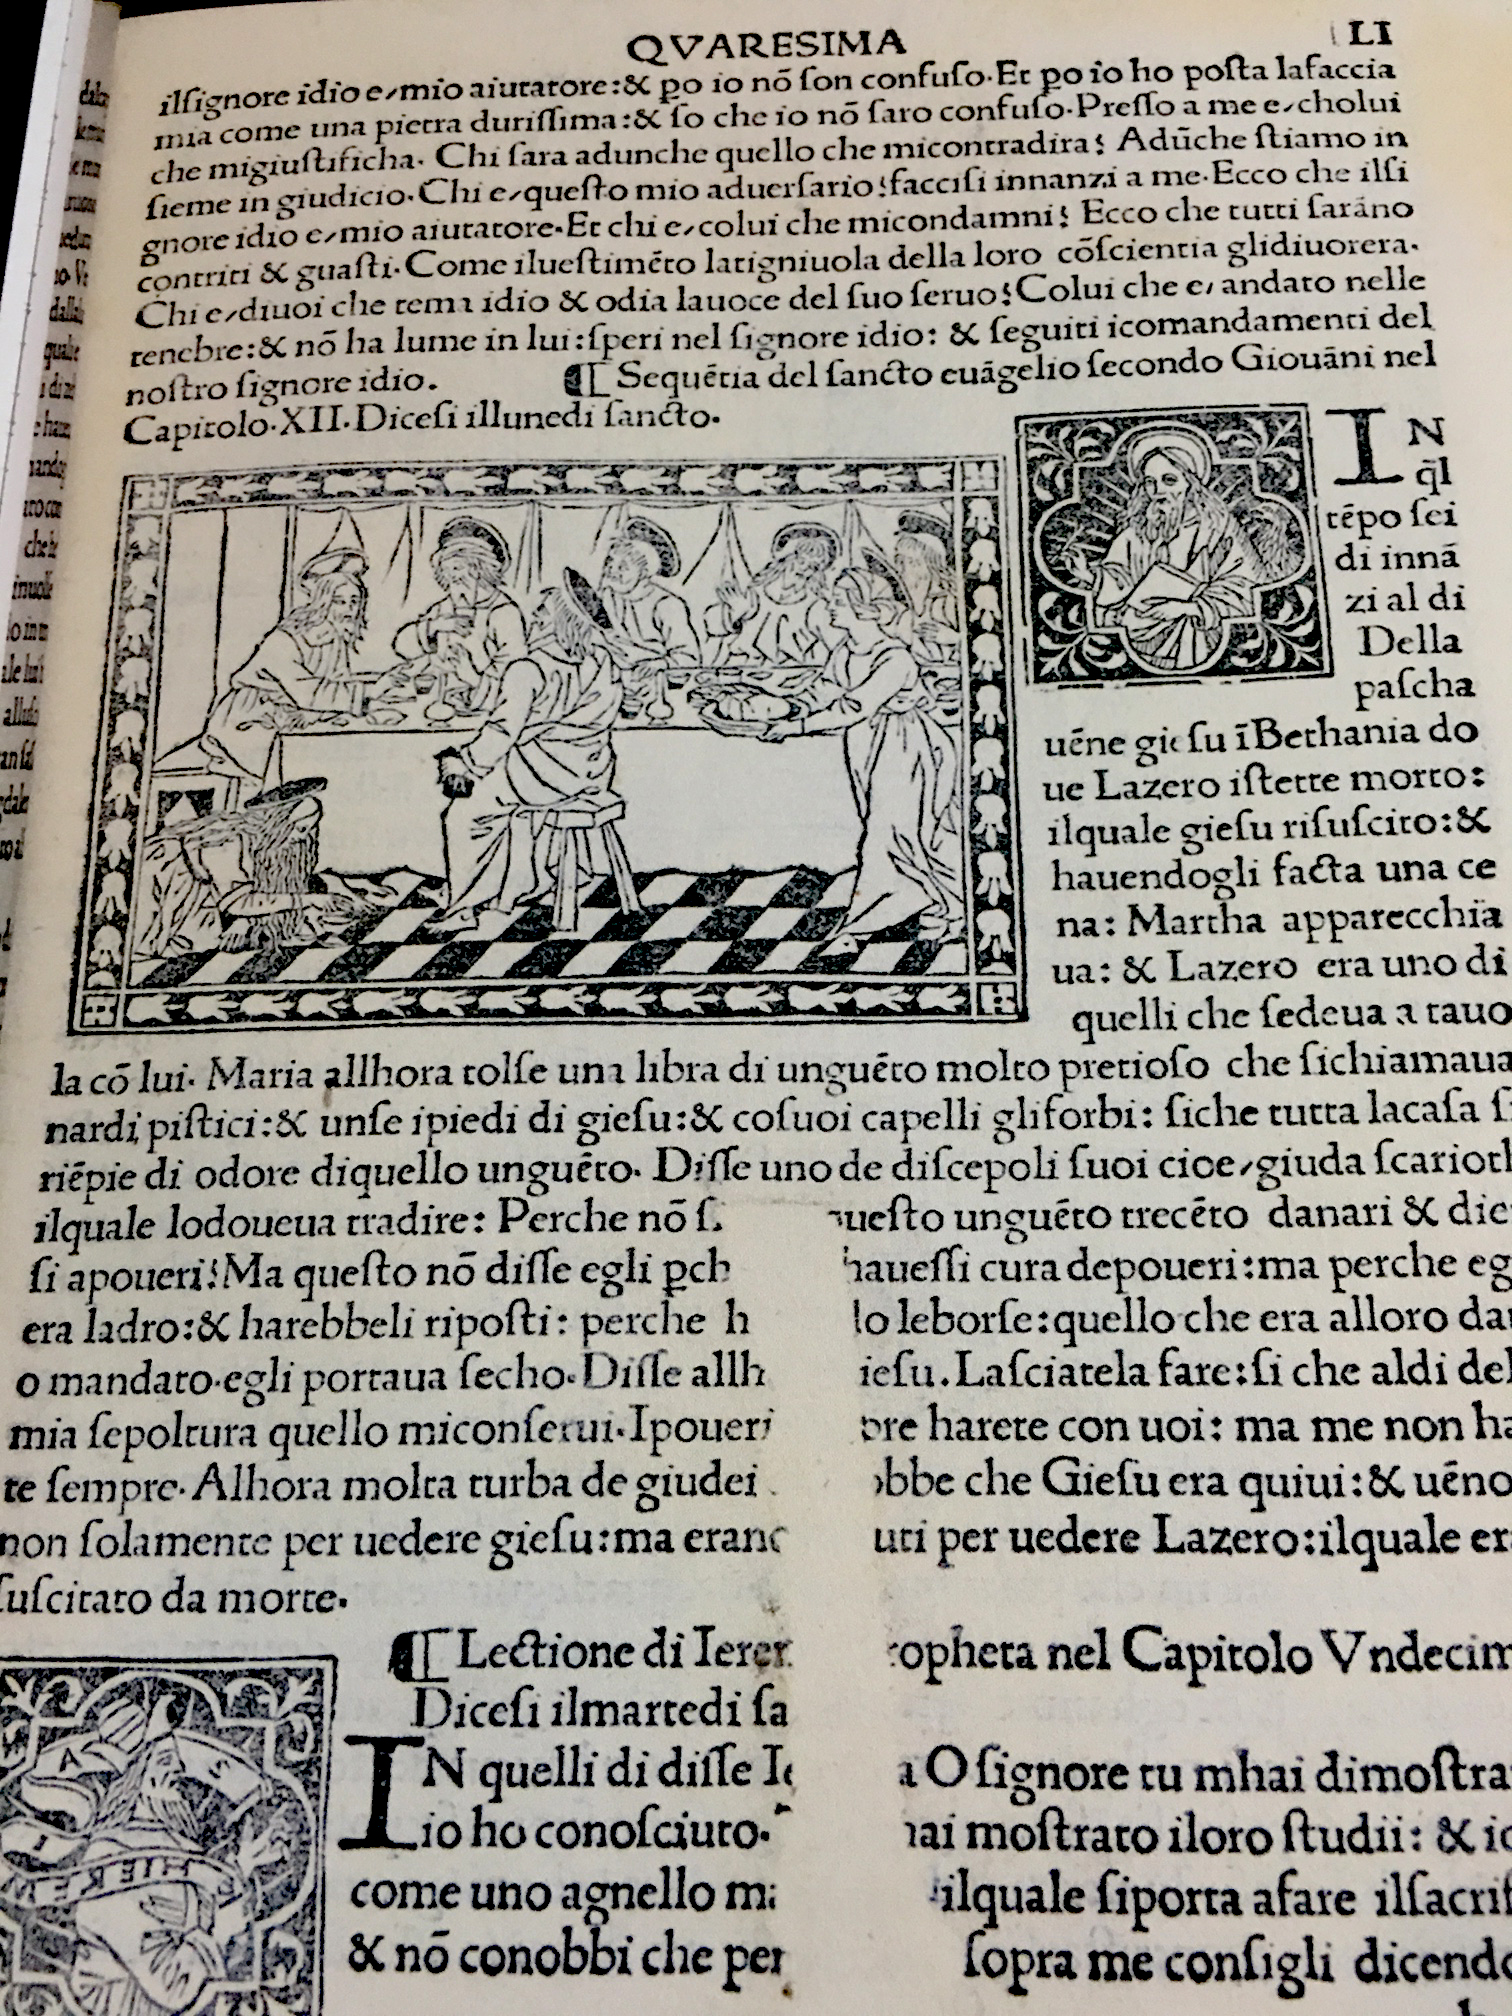 QVARESIMA LI
ilſignore idio e,mio aiutatore:& ꝑo io nō ſon confuſo.Et ꝑo io ho poſta lafaccia
mia come una pietra duriſſima:& ſo che io nō ſaro confuſo.Preſſo a me e,cholui
che migiuſtificha. Chi ſara adunche quello che micontradira? Adūche ſtiamo in
ſieme in giudicio.Chi e,queſto mio aduerſario?facciſi innanzi a me.Ecco che ilſi
gnore idio e,mio aiutatore.Et chi e,colui che micondamni? Ecco che tutti ſarāno
contriti & guaſti.Come ilueſtimēto latigniuola della loro cōſcientia glidiuorera.
Chi e,diuoi che tema idio & odia lauoce del ſuo ſeruo?Colui che e, andato nelle
tenebre:& nō ha lume in lui:ſperi nel ſignore idio: & ſeguiti icomandamenti del
noſtro ſignore idio. ¶ Sequētia del ſancto euāgelio ſecondo Giouāni nel
Capitolo.XII.Diceſi illunedi ſancto.
IN
q̄l
tēpo ſei
di innā
zi al di
Della
paſcha
uēne gieſu ī Bethania do
ue Lazero iſtette morto:
ilquale gieſu riſuſcito:&
hauendogli facta una ce
na: Martha apparecchia
ua: & Lazero era uno di
quelli che ſedeua a tauo
la cō lui. Maria allhora tolſe una libra di unguēto molto pretioſo che ſichiamaua
nardi piſtici:& unſe ipiedi di gieſu:& coſuoi capelli gliforbi: ſiche tutta lacaſa ſi
riēpie di odore diquello unguēto. Diſſe uno de diſcepoli ſuoi cioe,giuda ſcarioth
ilquale lodoueua tradire: Perche nō ueſto unguēto trecēto danari & die
ſi apoueri?Ma queſto nō diſſe egli haueſſi cura depoueri:ma perche eg
era ladro:& harebbeli ripoſti: perche lo leborſe:quello che era alloro
o mandato.egli portaua ſecho.Diſſe allh ieſu.Laſciatela fare:ſi che aldi del
mia ſepoltura quello miconſerui.Ipoueri pre harete con uoi: ma me non ha
te ſempre.Alhora molta turba de giudei obbe che Gieſu era quiui:& uēno
non ſolamente per uedere gieſu:ma erano uti per uedere Lazero:ilquale er
ſuſcitato da morte.
¶ Lectione di Ierem ropheta nel Capitolo Vndecim
Diceſi ilmartedi ſa
IN quelli di diſſe Ie a O ſignore tu mhai dimoſtra
io ho conoſciuto. hai moſtrato iloro ſtudii: & io
come uno agnello ma ilquale ſiporta afare ilſacrif
& nō conobbi che per ſopra me conſigli dicendo